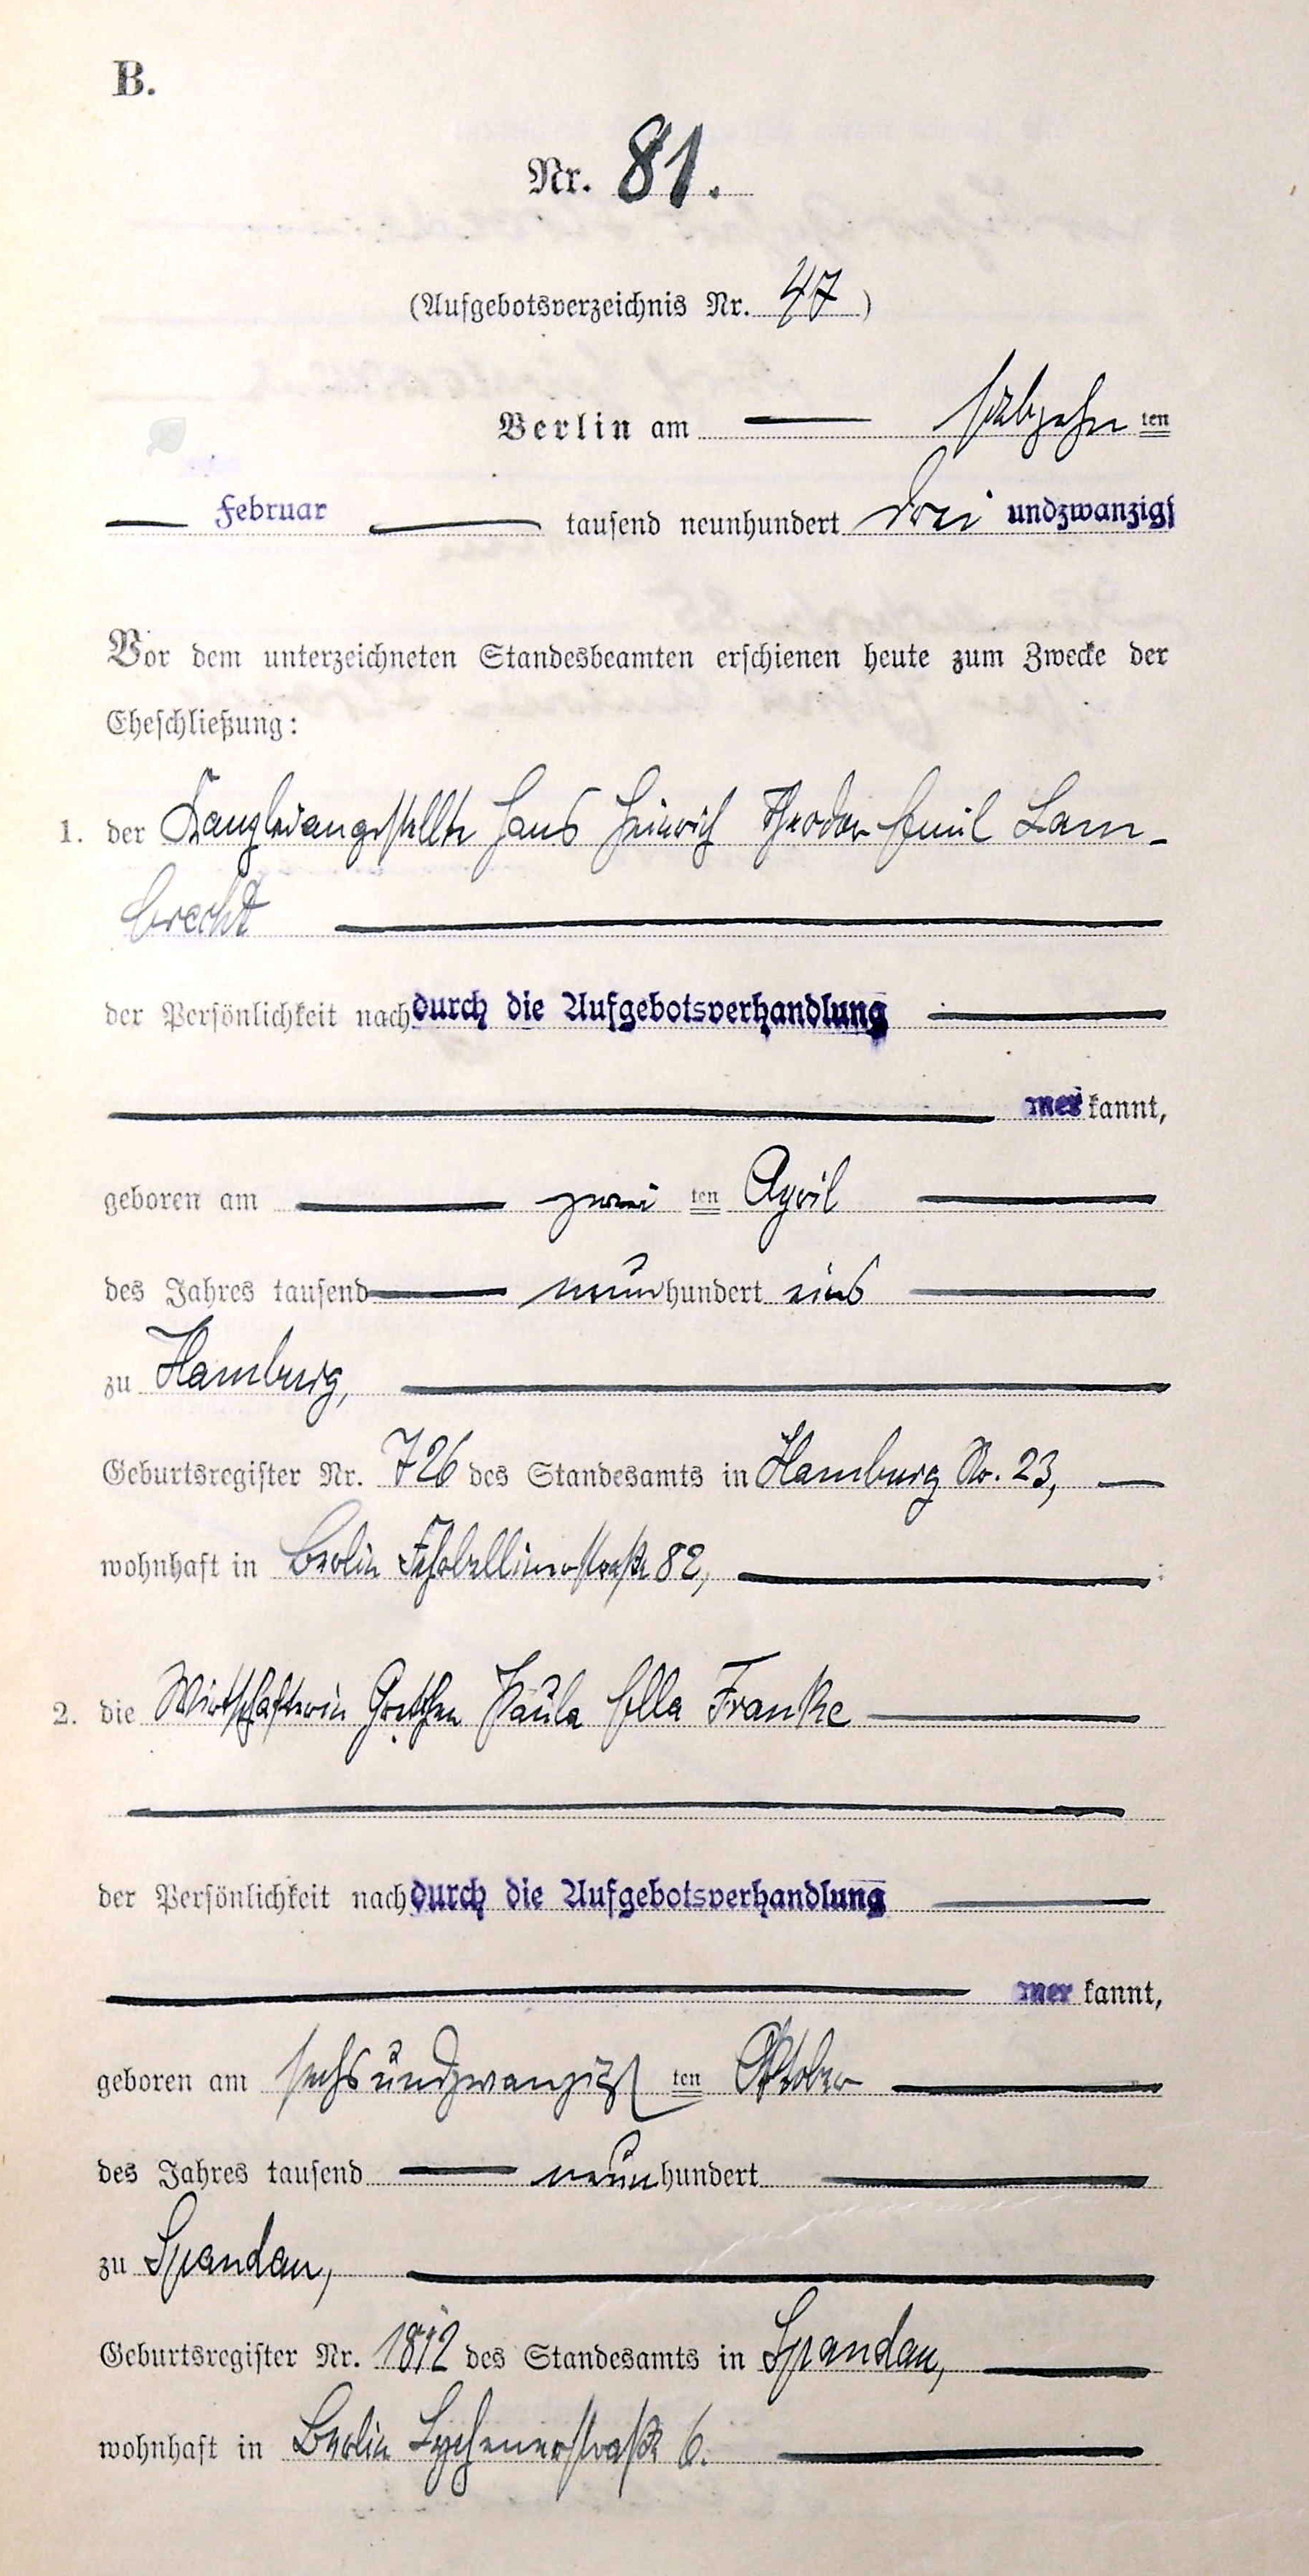 B.
Nr. 81.
(Aufgebotsverzeichnis Nr. 47)
Berlin am siebzehn ten
Februar tausend neunhundert drei undzwanzigs
Vor dem unterzeichneten Standesbeamten erschienen heute zum Zwecke der
Eheschließung:
1. der Kanzleiangestellte Hans Heinrich Theodor Emil Lam-
brecht
der Persönlichkeit nach durch die Aufgebotsverhandlung
kannt,
geboren am zwei ten April
des Jahres tausend neunhundert eins
zu Hamburg,
Geburtsregister Nr. 726 des Standesamts in Hamburg No. 23,
wohnhaft in Berlin Fehrbellinerstraße 82,
2. die Wirtschafterin Gretchen Paula Ella Franke
der Persönlichkeit nach durch die Aufgebotsverhandlung
kannt,
geboren am sechsundzwanzigs ten Oktober
des Jahres tausend neunhundert
zu Spandau,
Geburtsregister Nr. 1812 des Standesamts in Spandau,
wohnhaft in Berlin Lychenerstraße 6.